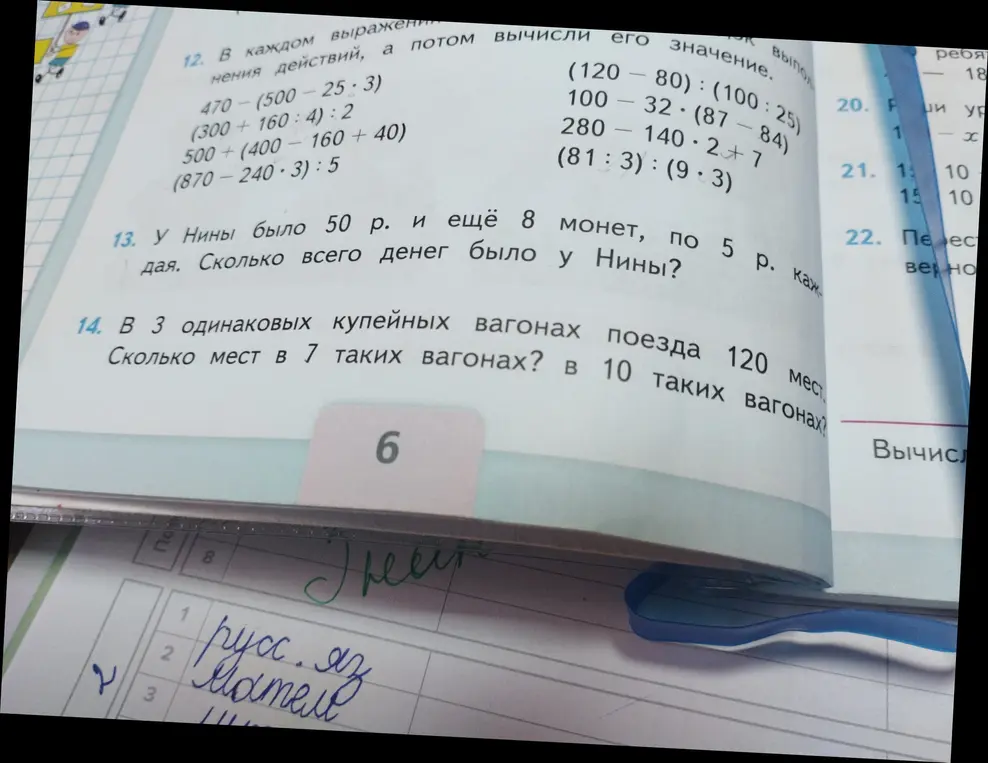 12. В каждом
нения действий, а потом вычисли его значение.
470 − (500 − 25 · 3)
(300 + 160 : 4) : 2
500 + (400 − 160 + 40)
(870 − 240 · 3) : 5
(120 − 80) : (100 : 25)
100 − 32 · (87 − 84)
280 − 140 · 2 + 7
(81 : 3) : (9 · 3)
13. У Нины было 50 р. и ещё 8 монет, по 5 р. каж-
дая. Сколько всего денег было у Нины?
14. В 3 одинаковых купейных вагонах поезда 120 мест.
Сколько мест в 7 таких вагонах? в 10 таких вагонах?
6
− 18
20.
− x
21.
10
15 10
22.
8
1 русс. яз
2 Матем
3
2